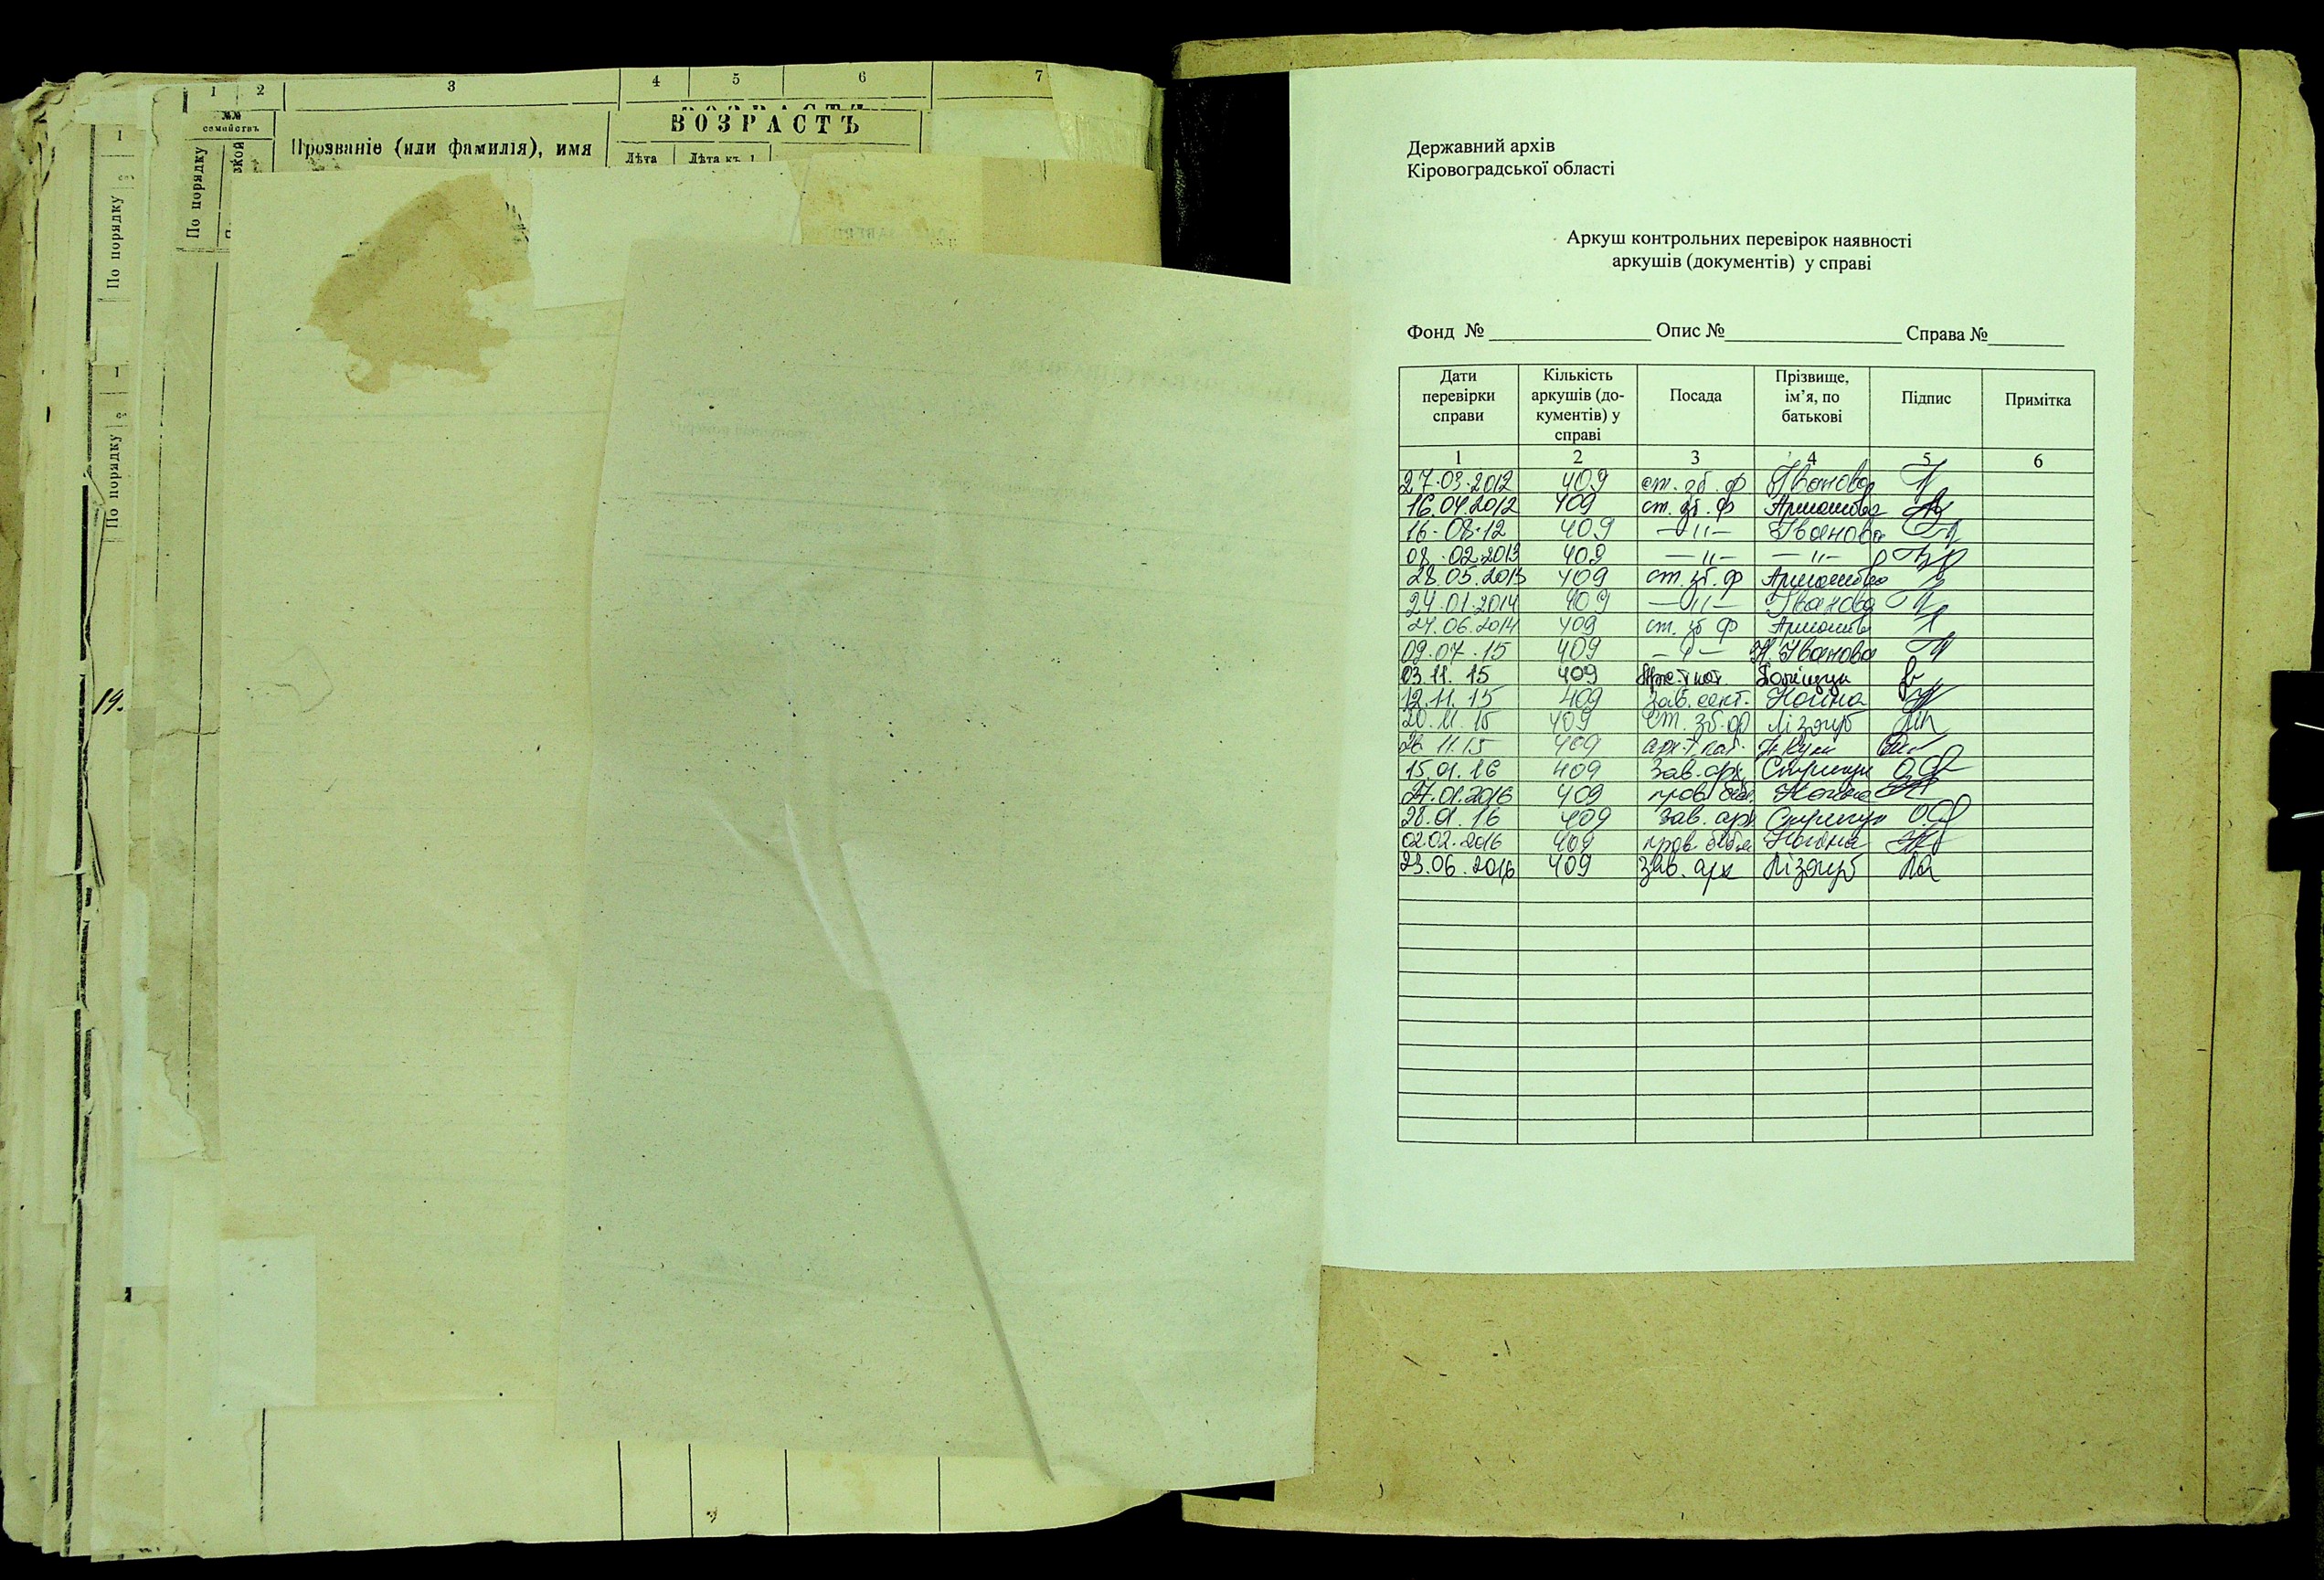 1 2 3 4 5 6 7
№№
семействъ
По порядку
Прозваніе (или фамилія), имя
ВОЗРАСТЪ
Лѣта
Лѣта къ 1
1
По порядку
1
По порядку
19.
Державний архів
Кіровоградської області
Аркуш контрольних перевірок наявності
аркушів (документів) у справі
Фонд № Опис № Справа №
Дати перевірки справи Кількість аркушів (до-кументів) у справі Посада Прізвище, ім’я, по батькові Підпис Примітка
1 2 3 4 5 6
27.03.2012 409 ст. зб. ф Іванова
16.04.2012 409 ст. зб. ф
16.08.12 409 —"— Іванова
08.02.2013 409 —"— —"—
28.05.2013 409 ст. зб. ф
24.01.2014 409 —"— Іванова
24.06.2014 409 ст. зб ф
09.07.15 409 —"— Н. Іванова
03.11.15 409
12.11.15 409 зав. сект.
20.11.15 409 ст. зб. ф Лізогуб
26 11.15 409
15.01.16 409 зав. арх.
27.01.2016 409
28.01.16 409 зав. арх
02.02.2016 409
23.06.2016 409 зав. арх Лізогуб